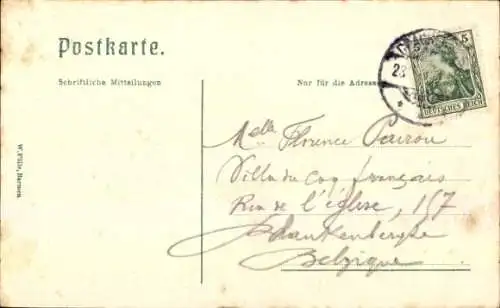 Postkarte.
Schriftliche Mitteilungen
Nur für die Adresse
28
5
DEUTSCHES REICH
Melle Florence
Villa du Coq français
Rue de l'église, 157
Blankenberghe
Belgique
W. Fülle, Barmen